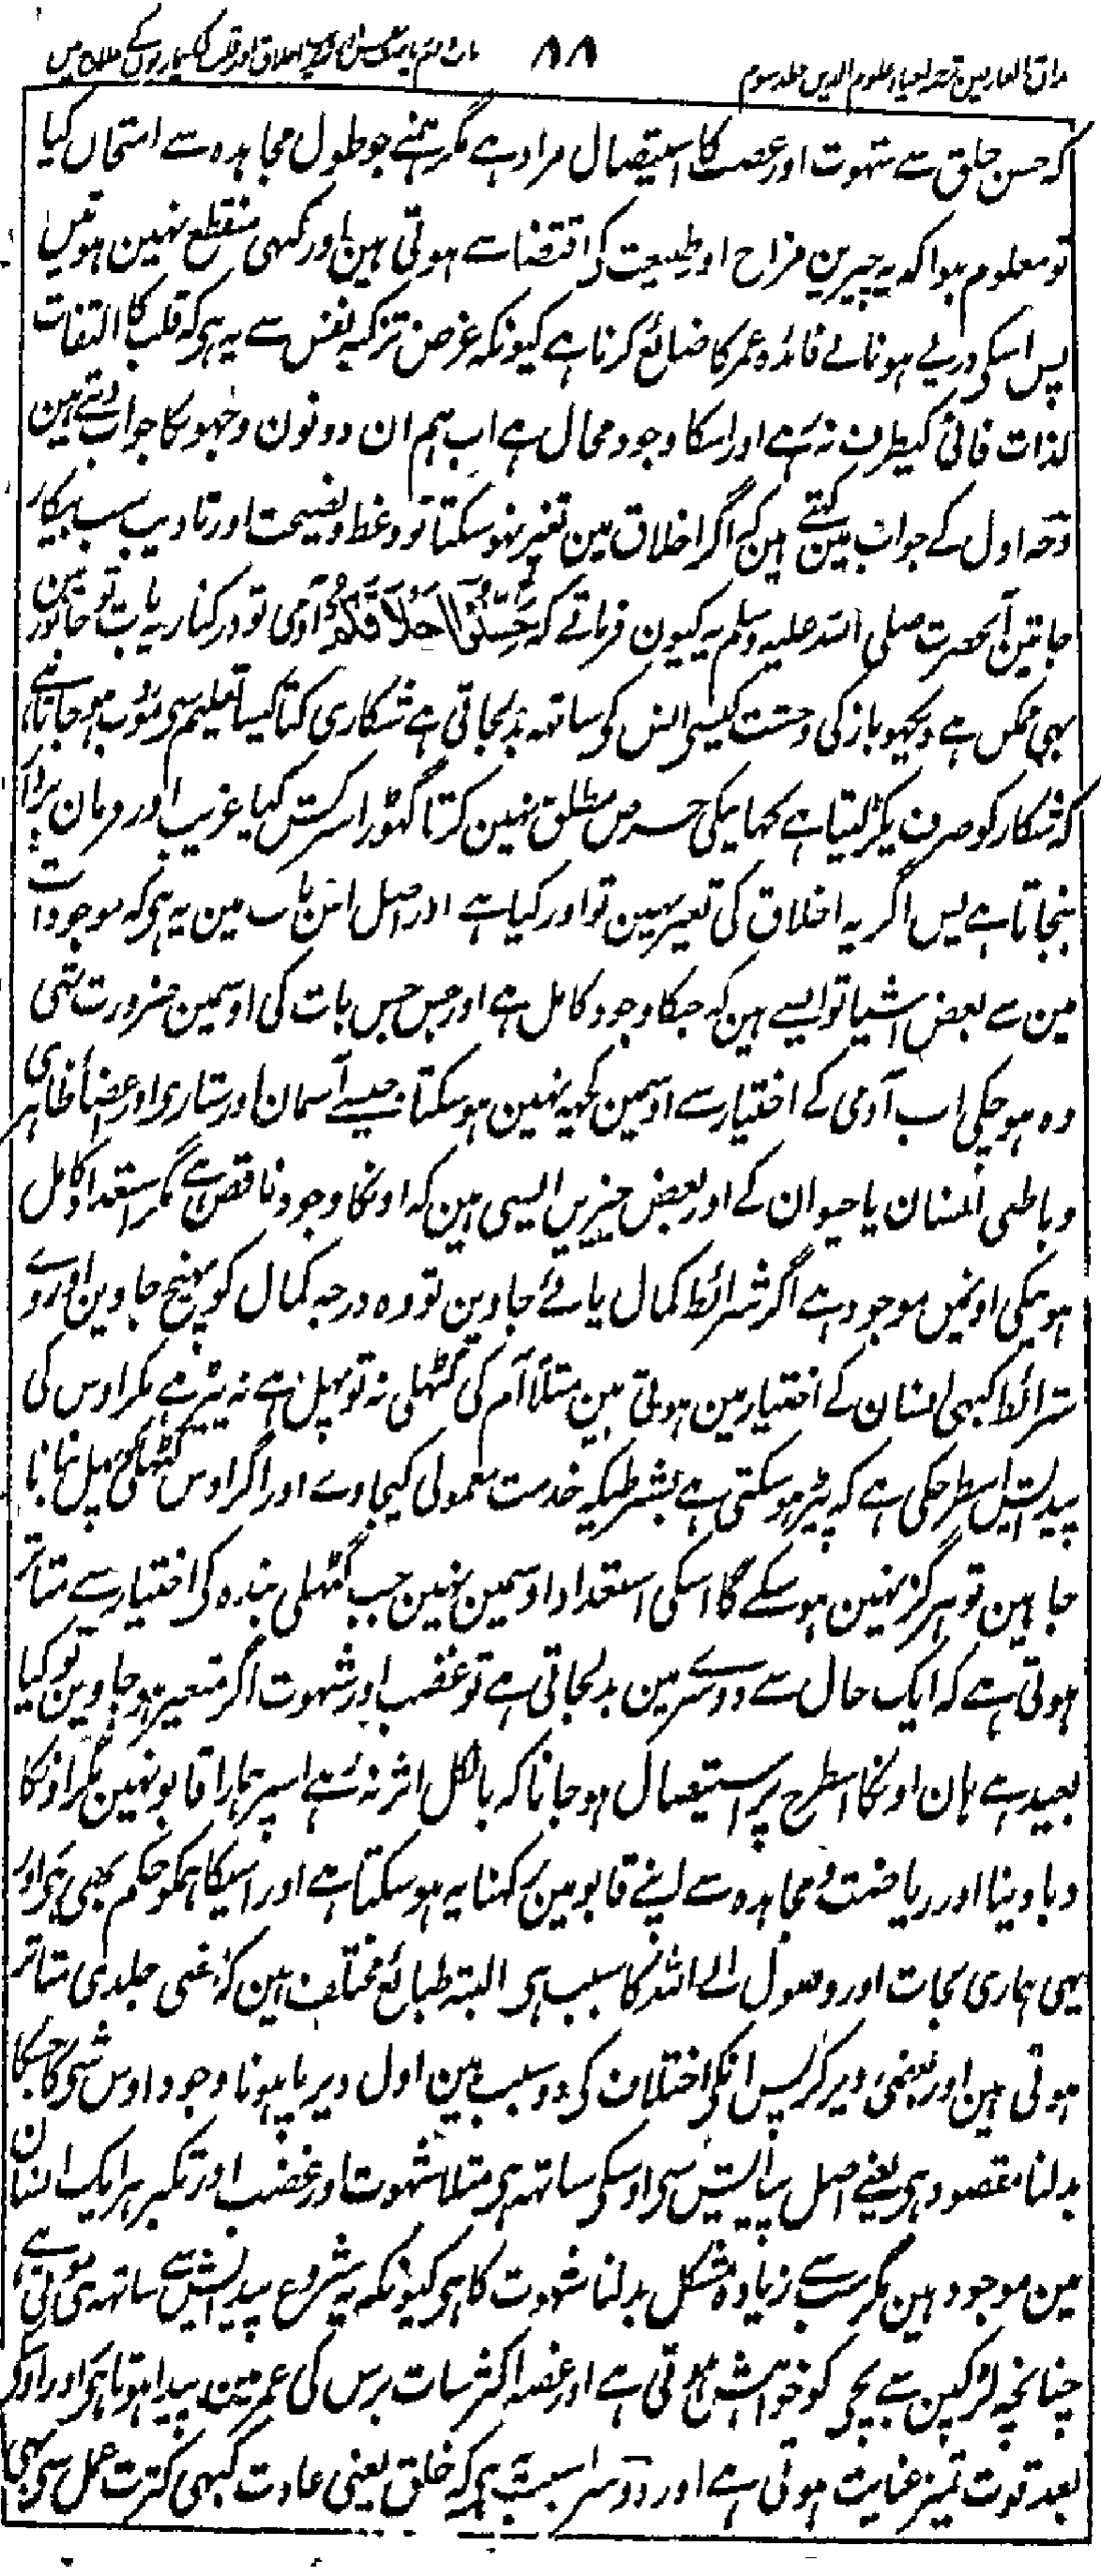 مذاق العارفین ترجمہ احیاء علوم الدین جلد سوم ۸۸ باب دوم ریاضت نفس اور تہذیب اخلاق اور قلب کی بیماریوں کے علاج میں
کہ حسن خلق سے شہوت اور غضب کا استیصال مراد ہے مگر ہمنے جو طول مجاہدہ سے امتحان کیا
تو معلوم ہوا کہ یہ چیزین مزاج اور طبیعت کی اقتضا سے ہوتی ہین اور کبھی منقطع نہین ہوتیں
پس اسکی درپے ہونا بے فائدہ عمر کا ضائع کرنا ہے کیونکہ غرض تزکیہ نفس سے یہ ہی کہ قلب کا التفات
لذات فانی کیطرف نرہے اور اسکا وجود محال ہے اب ہم ان دونون وجہونکا جواب دیتے ہین
وجہ اول کے جواب مین کہتے ہین کہ اگر اخلاق مین تغیر نہو سکتا تو وعظ و نصیحت اور تادیب سب بیکار
جاتین آنحضرت صلی اللہ علیہ وسلم یہ کیون فرماتے کہ حَسِّنُوْا اَخْلَاقَكُمْ آدمی تو درکنار یہ بات تو جانور مین
بہی ممکن ہے دیکہو باز کی وحشت کیسی انس کی ساتھہ بدلجاتی ہے شکاری کتا کیسا تعلیم سی مؤدب ہو جاتا ہے
کہ شکار کو صرف پکڑ لیتا ہے کہانیکی حرص مطلق نہین کرتا گھوڑا سرکش کیا غریب اور فرمان بردار
بنجاتا ہے پس اگر یہ اخلاق کی تغیر نہین تو اور کیا ہے اور اصل اس باب مین یہ ہی کہ موجودات
مین سے بعض اشیا تو ایسے ہین کہ جنکا وجود کامل ہے اور جس جس بات کی اوسمین ضرورت تھی
وہ ہو چکی اب آدمی کے اختیار سے اوسمین کچہہ نہین ہو سکتا جیسے آسمان اور ستارے اور اعضا ظاہری
و باطنی انسان یا حیوان کے اور بعض چیزیں ایسی ہین کہ اونکا وجود ناقص ہے مگر استعداد کامل
ہونیکی اونمیں موجود ہے اگر شرائط کمال پائے جاوین تو وہ درجہ کمال کو پہنچ جاوین اور وے
شرائط کبھی انسان کے اختیار مین ہوتی ہین مثلاً آم کی گٹھلی نہ تو پہل ہے نہ پیڑ ہے مگر اوس کی
پیدایش اسطرحکی ہے کہ پیڑ ہو سکتی ہے بشرطیکہ خدمت معمولی کیجاوے اور اگر اوس گٹھلی کو پہل بنانا
چاہین تو ہرگز نہین ہو سکے گا اسکی استعداد اوسمین نہین جب گٹھلی بندہ کی اختیار سے متاثر
ہوتی ہے کہ ایک حال سے دوسرے مین بدلجاتی ہے تو غضب اور شہوت اگر متغیر ہو جاوین تو کیا
بعید ہے ہان اونکا اسطرح پر استیصال ہو جانا کہ بالکل اثر نرہے اسپر ہمارا قابو نہین مگر اونکا
دبا دینا اور ریاضت و مجاہدہ سے اپنے قابو مین رکہنا یہ ہو سکتا ہے اور اسیکا ہمکو حکم بھی ہی اور
یہی ہماری نجات اور وصول الے اللہ کا سبب ہی البتہ طبائع مختلف ہین کہ بعضی جلدی متاثر
ہوتی ہین اور بعضی دیر کر پس انکی اختلاف کی دو سبب ہین اول دیرپا ہونا وجود اوس شی کا جسکا
بدلنا مقصود ہی یعنے اصل پیدایش سی اوسکی ساتھہ ہی مثلا شہوت اور غضب اور تکبر ہر ایک انسان
مین موجود ہین مگر سب سے زیادہ مشکل بدلنا شہوت کا ہی کیونکہ یہ شروع پیدایش سے ساتھہ ہی ہوتی ہے
چنانچہ لڑکپن سے بچی کو خواہش ہوتی ہے اور غضب اکثر سات برس کی عمر مین پیدا ہوتا ہی اور اوسکی
بعد قوت تمیز عنایت ہوتی ہے اور دوسرا سبب یہ ہی کہ خلق یعنی عادت کبھی کثرت عمل سی بہی